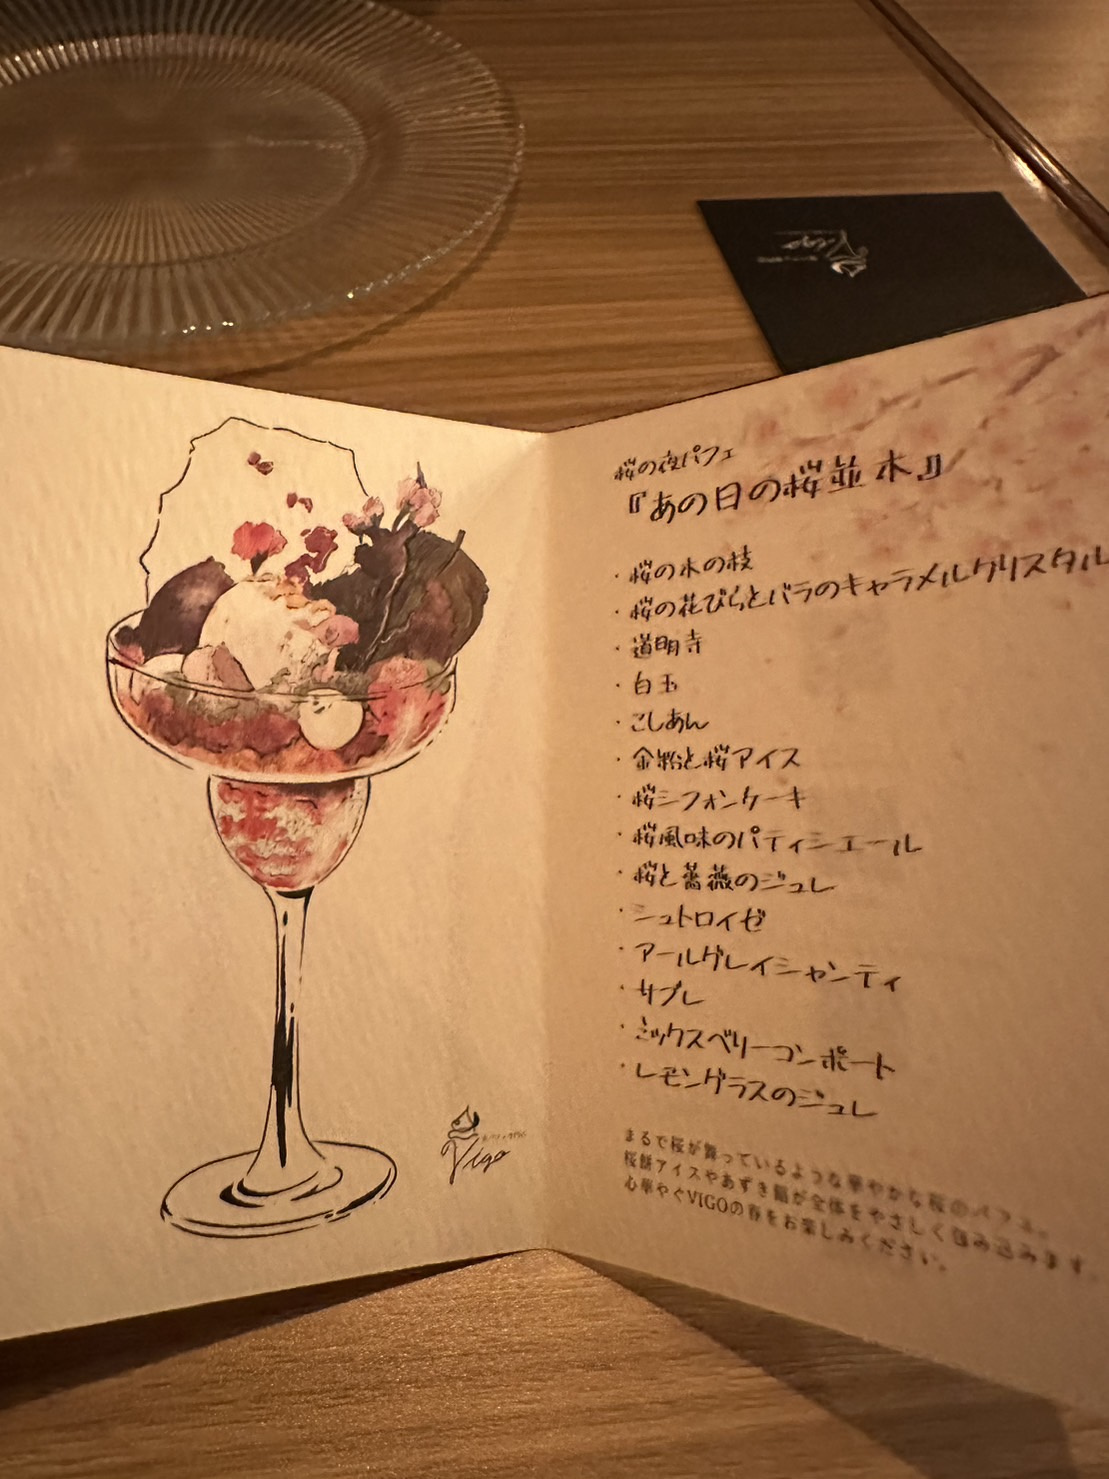 Vigo
桜の夜パフェ
『あの日の桜並木』
・桜の木の枝
・桜の花びらとバラのキャラメルクリスタル
・道明寺
・白玉
・こしあん
・金粉と桜アイス
・桜シフォンケーキ
・桜風味のパティシエール
・桜と薔薇のジュレ
・シュトロイゼ
・アールグレイシャンティ
・サブレ
・ミックスベリーコンポート
・レモングラスのジュレ
まるで桜が舞っているような華やかな桜のパフェ。
桜餅アイスやあずき餡が全体をやさしく包み込みます。
心華やぐVIGOの春をお楽しみください。
Vigo